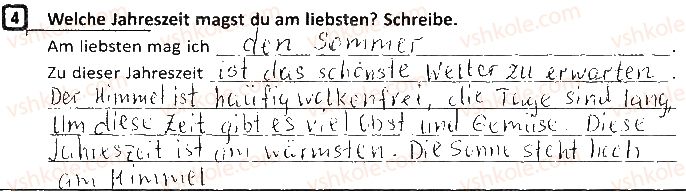 4 Welche Jahreszeit magst du am liebsten? Schreibe.
Am liebsten mag ich den Sommer.
Zu dieser Jahreszeit ist das schönste Wetter zu erwarten.
Der Himmel ist häufig wolkenfrei, die Tage sind lang,
Um diese Zeit gibt es viel Obst und Gemüse. Diese
Jahreszeit ist am wärmsten. Die Sonne steht hoch
am Himmel